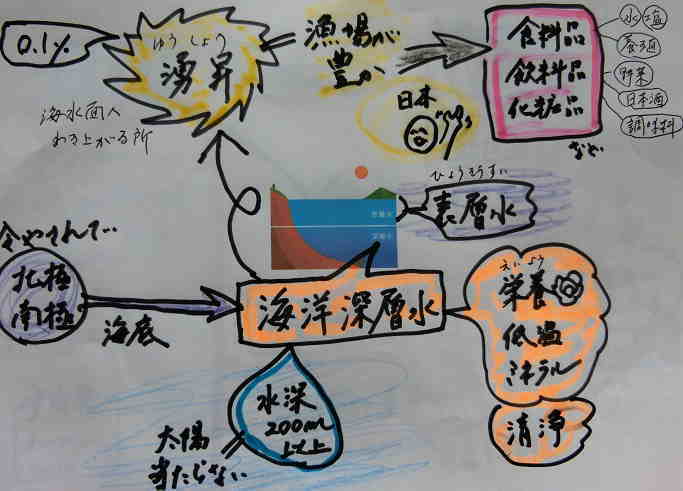 0.1%
ゆうしょう
湧昇
海水面へ
わき上がる所
漁場が
豊か
日本
食料品
飲料品
化粧品
など
水
塩
野菜
日本酒
調味料
ひょうそうすい
表層水
表層水
深層水
冷やされて…
北極
南極
海底
海洋深層水
えいよう
栄養
低温
ミネラル
清浄
水深
200m
以上
太陽
当たらない